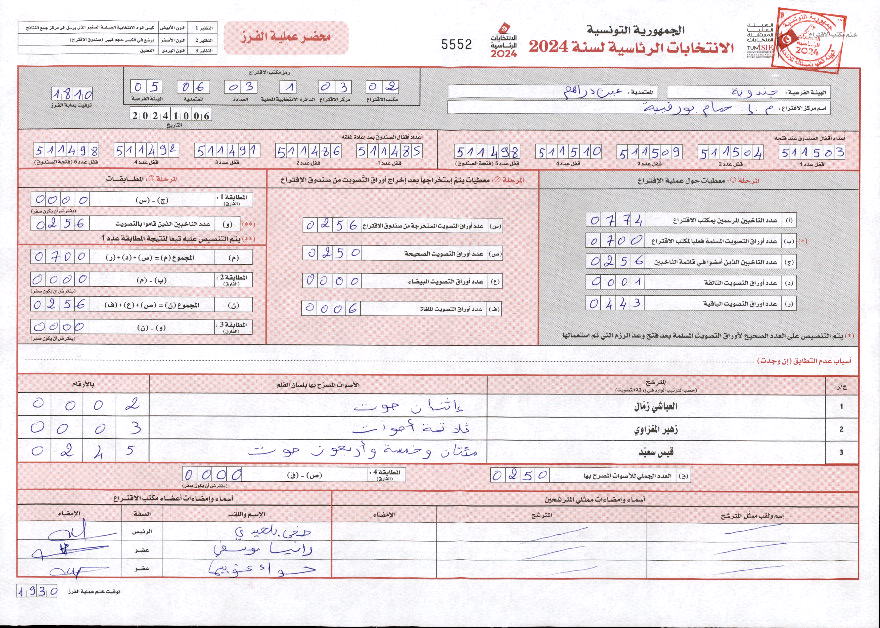 الجمهورية التونسية
الانتخابات الرئاسية لسنة 2024
الانتخابات الرئاسية 2024
5552
محضر عملية الفرز
الهيئة الفرعية: جندوبة
المعتمدية: عين دراهم
اسم مركز الاقتراع: م.ا حمام بورقيبة
رمز مكتب الاقتراع
02 03 1 03 06 05
مكتب الاقتراع مركز الاقتراع الدائرة الانتخابية المحلية العمادة المعتمدية الهيئة الفرعية
1810
توقيت بداية الفرز
20241006
التاريخ
أعداد أقفال الصندوق عند فتحه
511503 511504 511509 511510 511498
أعداد أقفال الصندوق بعد إعادة غلقه
511485 511486 511491 511492 511498
المرحلة 1: معطيات حول عملية الاقتراع
(أ) عدد الناخبين المرسمين بمكتب الاقتراع 0774
(ب) عدد أوراق التصويت المسلمة فعليا لمكتب الاقتراع 0700 (*)
(ج) عدد الناخبين الذين أمضوا في قائمة الناخبين 0256
(د) عدد أوراق التصويت التالفة 0001
(ر) عدد أوراق التصويت الباقية 0443
(*) يتم التنصيص على العدد الصحيح لأوراق التصويت المسلمة بعد فتح وعد الرزم التي تم استعمالها
المرحلة 2: معطيات يتم إستخراجها بعد إخراج أوراق التصويت من صندوق الاقتراع
(س) عدد أوراق التصويت المستخرجة من صندوق الاقتراع 0256
(ص) عدد أوراق التصويت الصحيحة 0250
(ع) عدد أوراق التصويت البيضاء 0000
(ف) عدد أوراق التصويت الملغاة 0006
المرحلة 3: المطابقات
المطابقة 1: (الفارق) (ج) - (س) 0000
(**) (و) عدد الناخبين الذين قاموا بالتصويت 0256
(**) يتم التنصيص عليه تبعا لنتيجة المطابقة عدد 1
(م) المجموع (م) = (س) + (د) + (ر) 0700
المطابقة 2: (الفارق) (ب) - (م) 0000
(ن) المجموع (ن) = (ص) + (ع) + (ف) 0256
المطابقة 3: (الفارق) (و) - (ن) 0000
أسباب عدم التطابق (إن وجدت)
ع/د المترشح الأصوات المصرح بها بلسان القلم بالأرقام
1 العياشي زمال إثنان صوت 0002
2 زهير المغزاوي ثلاثة أصوات 0003
3 قيس سعيد مئتان وخمسة وأربعون صوت 0245
(ق) العدد الجملي للأصوات المصرح بها 0250
المطابقة 4: (الفارق) (ص) - (ق) 0000
أسماء وإمضاءات ممثلي المترشحين
أسماء وإمضاءات أعضاء مكتب الاقتراع
اسم ولقب ممثل المترشح المترشح الإمضاء
الاسم واللقب الصفة الإمضاء
الرئيس
عضو
عضو
توقيت ختم عملية الفرز 1930